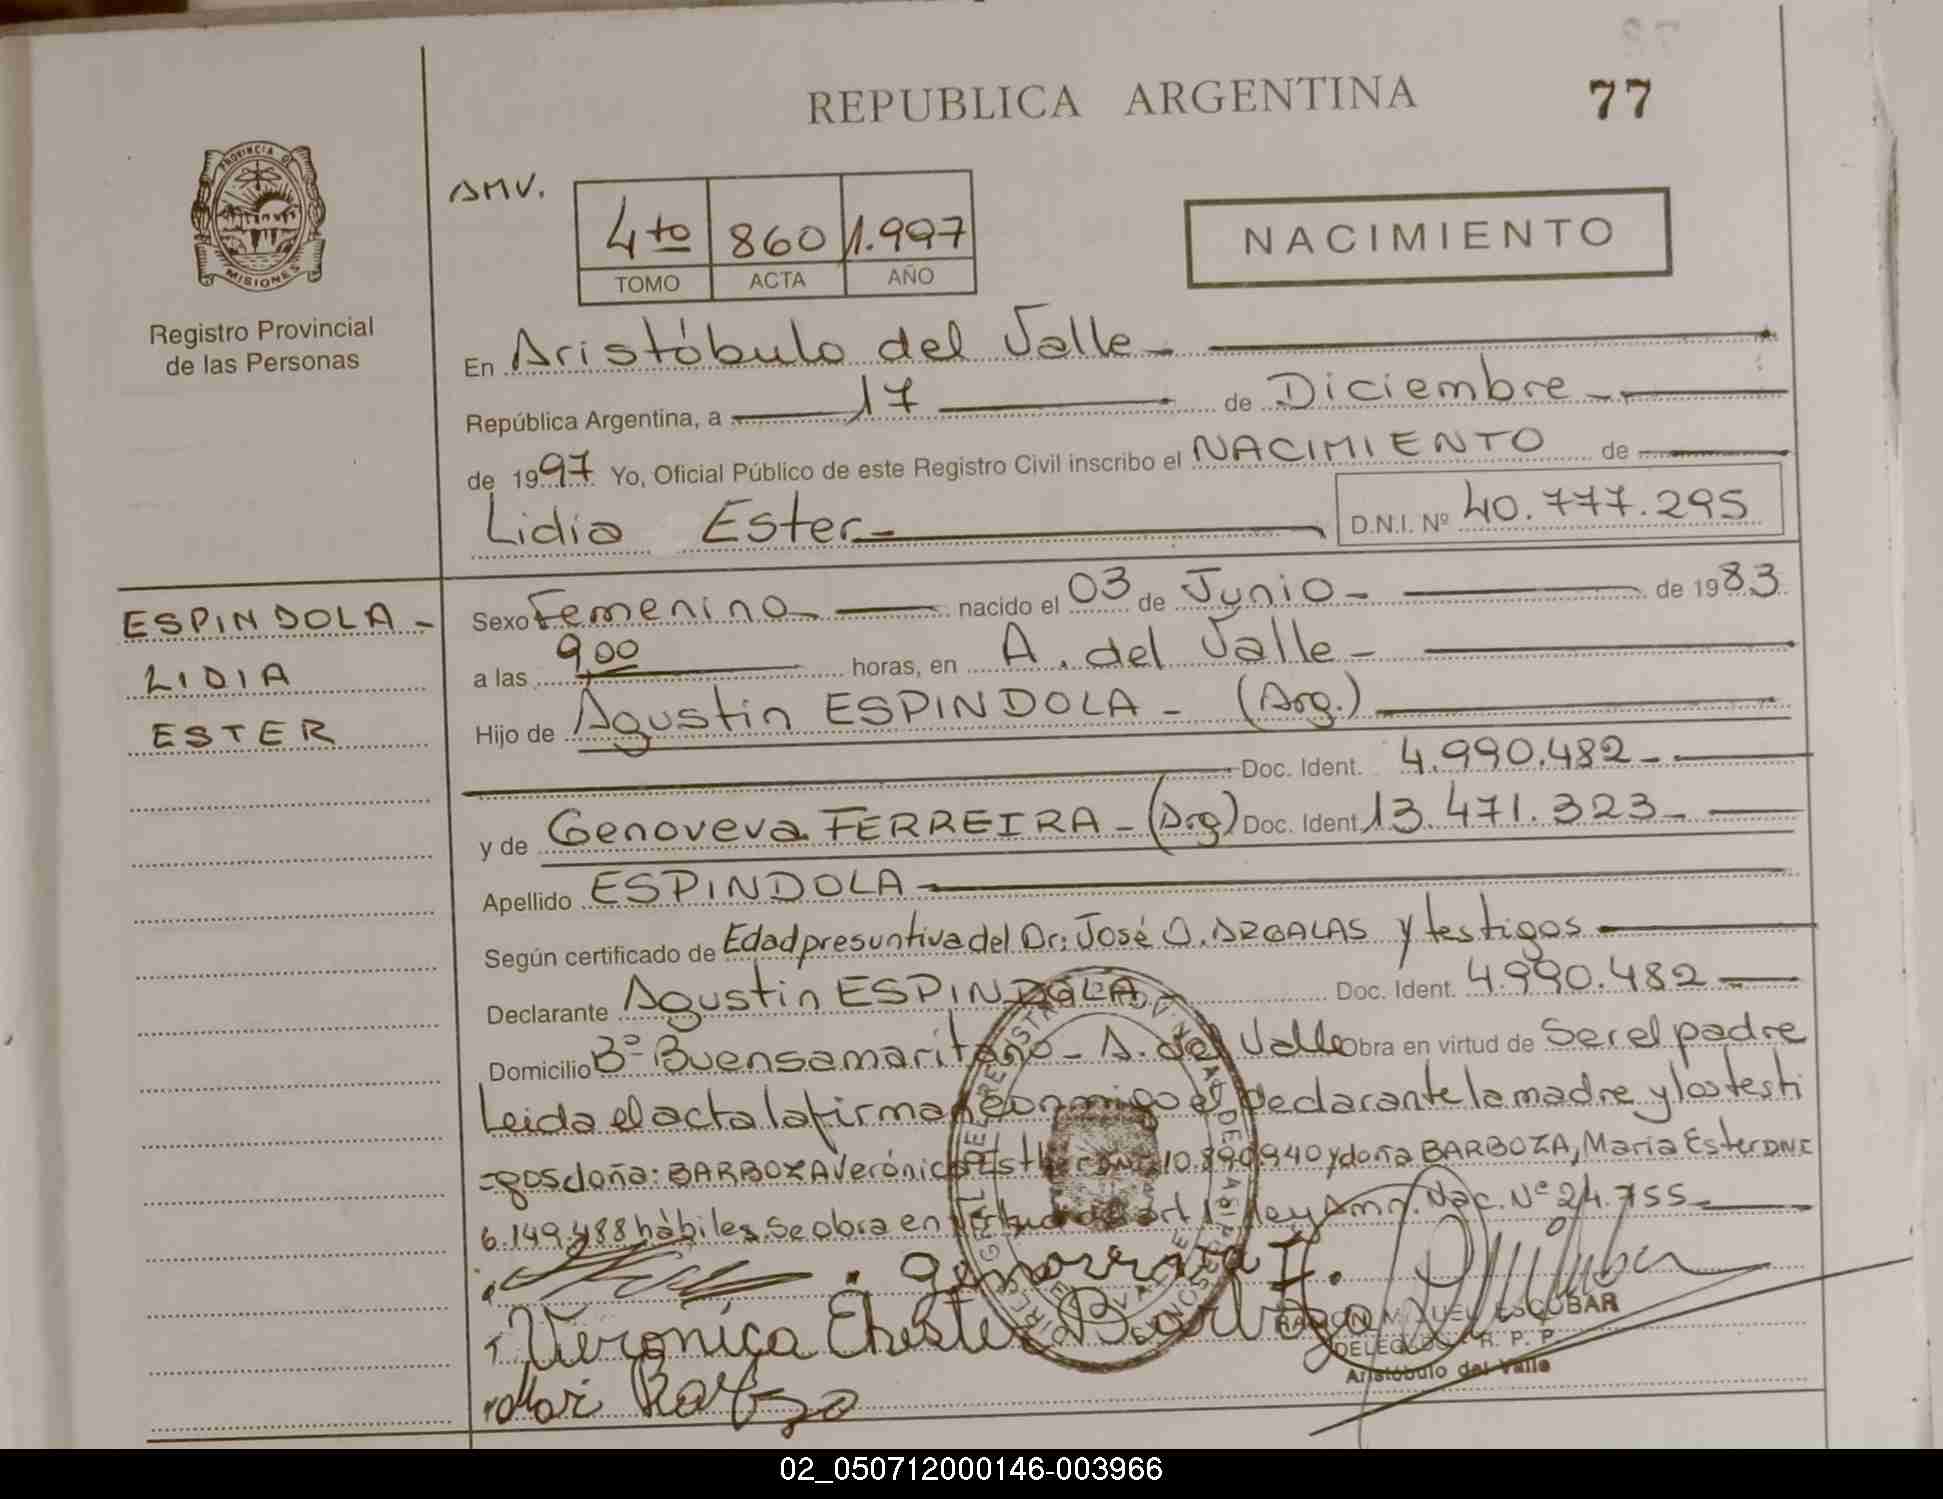 REPUBLICA ARGENTINA
77
PROVINCIA DE
MISIONES
Registro Provincial
de las Personas
AMV.
4to 860 1.997
TOMO ACTA AÑO
NACIMIENTO
En Aristóbulo del Valle -
República Argentina, a 17 de Diciembre -
de 1997 Yo, Oficial Público de este Registro Civil inscribo el NACIMIENTO de
Lidia Ester -
D.N.I. Nº 40.777.295
ESPINDOLA -
LIDIA
ESTER
Sexo Femenino nacido el 03 de Junio - de 1983
a las 9,00 horas, en A. del Valle -
Hijo de Agustin ESPINDOLA - (Arg.)
Doc. Ident. 4.990.482 -
y de Genoveva FERREIRA - (Arg) Doc. Ident. 13.471.323 -
Apellido ESPINDOLA
Según certificado de Edad presuntiva del Dr: José O. ARGALAS y testigos
Declarante Agustin ESPINDOLA - Doc. Ident. 4.990.482
Domicilio Bº Buensamaritano - A. del Valle Obra en virtud de Ser el padre
Leida el acta la firman conmigo el declarante la madre y los testi
=gos doña: BARBOZA Verónica Esther DNI 10.890.940 y doña BARBOZA, María Ester DNI
6.149.488 hábiles. Se obra en virtud de art 1 ley Amn. Nac. Nº 24.755
Genoveva F.
Veronica Ehester Barboza
RAMON MIGUEL ESCOBAR
DELEGADO R. P. P.
Aristóbulo del Valle
Mari Barboza
02_050712000146-003966